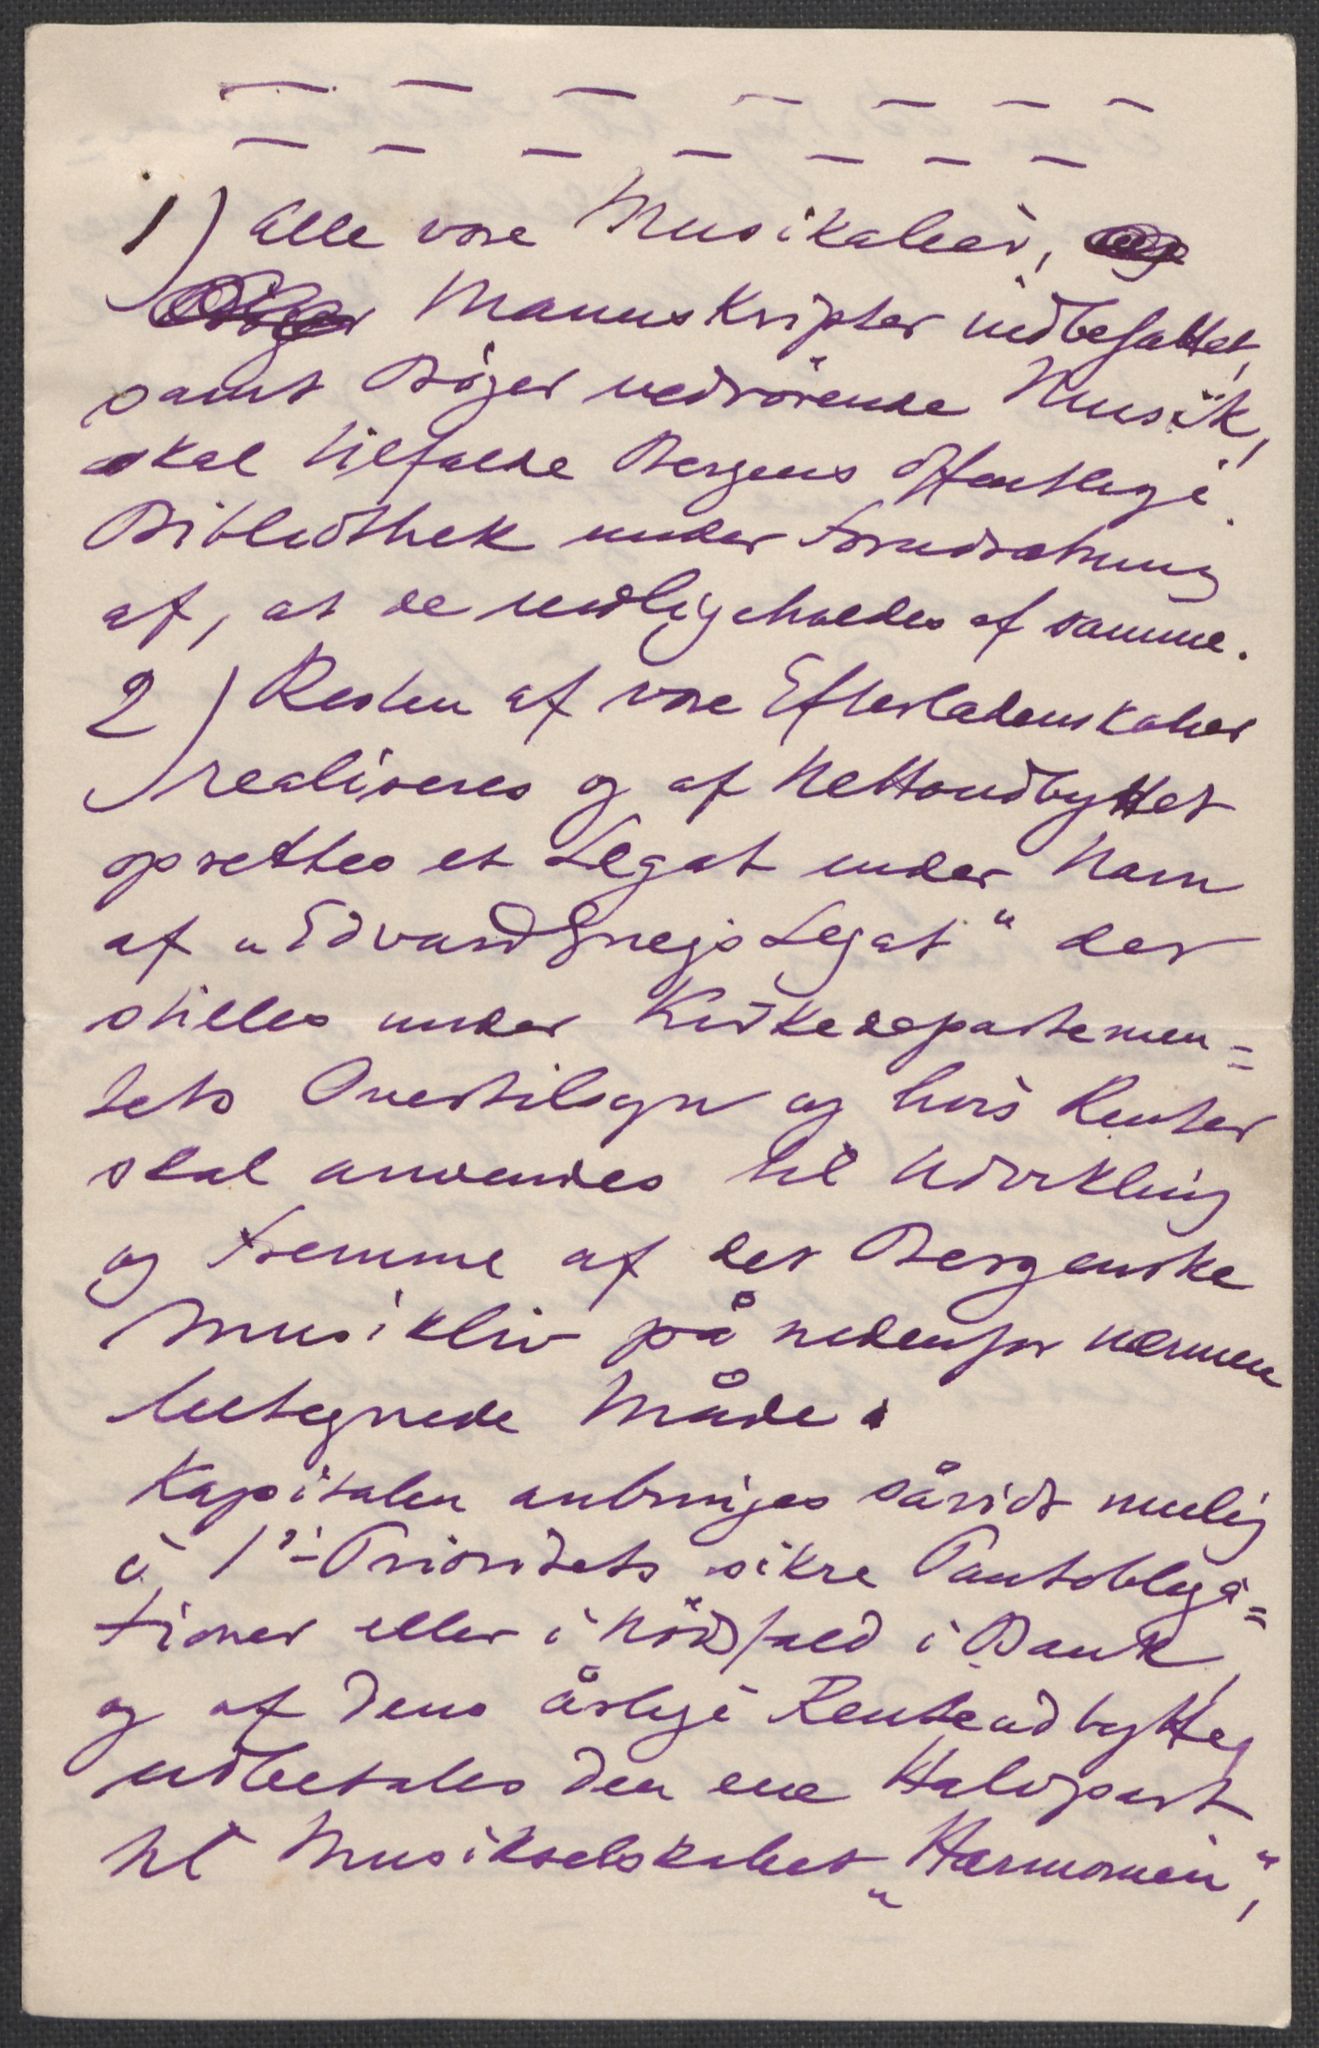 — — — — — — —
— — — — — — —
1) Alle vore Musikalier,
Manuskripter indbefattet,
samt Bøger vedrørende Musik,
skal tilfalde Bergens Offentlige
Bibliothek under Forudsætning
af, at de vedligeholdes af samme.
2) Resten af vore Efterladenskaber
realiseres og af Nettoudbyttet
oprettes et Legat under Navn
af „Edvard Griegs Legat" der
stilles under Kirkedepartemen=
tets Overtilsyn og hvis Renter
skal anvendes til Udvikling
og Fremme af det Bergenske
Musikliv på nedenfor nærmere
betegnede Måde.
Kapitalen anbringes såvidt mulig
i 1ste Prioritets sikre Pantobliga=
tioner eller i Nödsfald i Bank,
og af dens årlige Renteudbytte,
udbetales den ene Halvpart
til Musikselskabet „Harmonien",